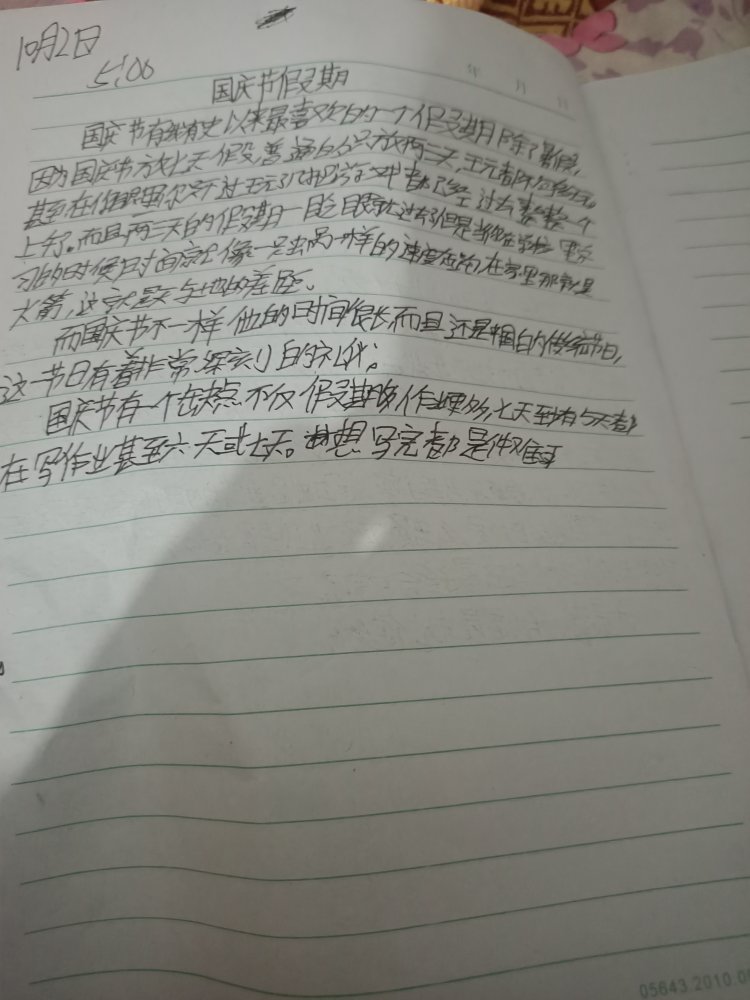 10月2日
5:00
年 月 日
国庆节假期
国庆节有我有史以来最喜欢的一个假期除了暑假,
因为国庆节方放七天假,普通的只放两三天,王元都不够玩
甚至在作业里尔只不过玩了把游戏才已经过去整整一个
上午。而且两三天的假期一眨眼就过去了但是当你在学校里学
习的时侯时间就像一只蜗一样的速度在在家里那就是
火箭,这就是天与地的差距。
而国庆节不一样他的时间很长而且还是中国的传统节日,
这一节日有着非常深刻的礼仪;
国庆节有一个缺点不仅假期的作业多七天至有5天都
在写作业甚至六天或七天。想写完都是件难
05643.2010.0